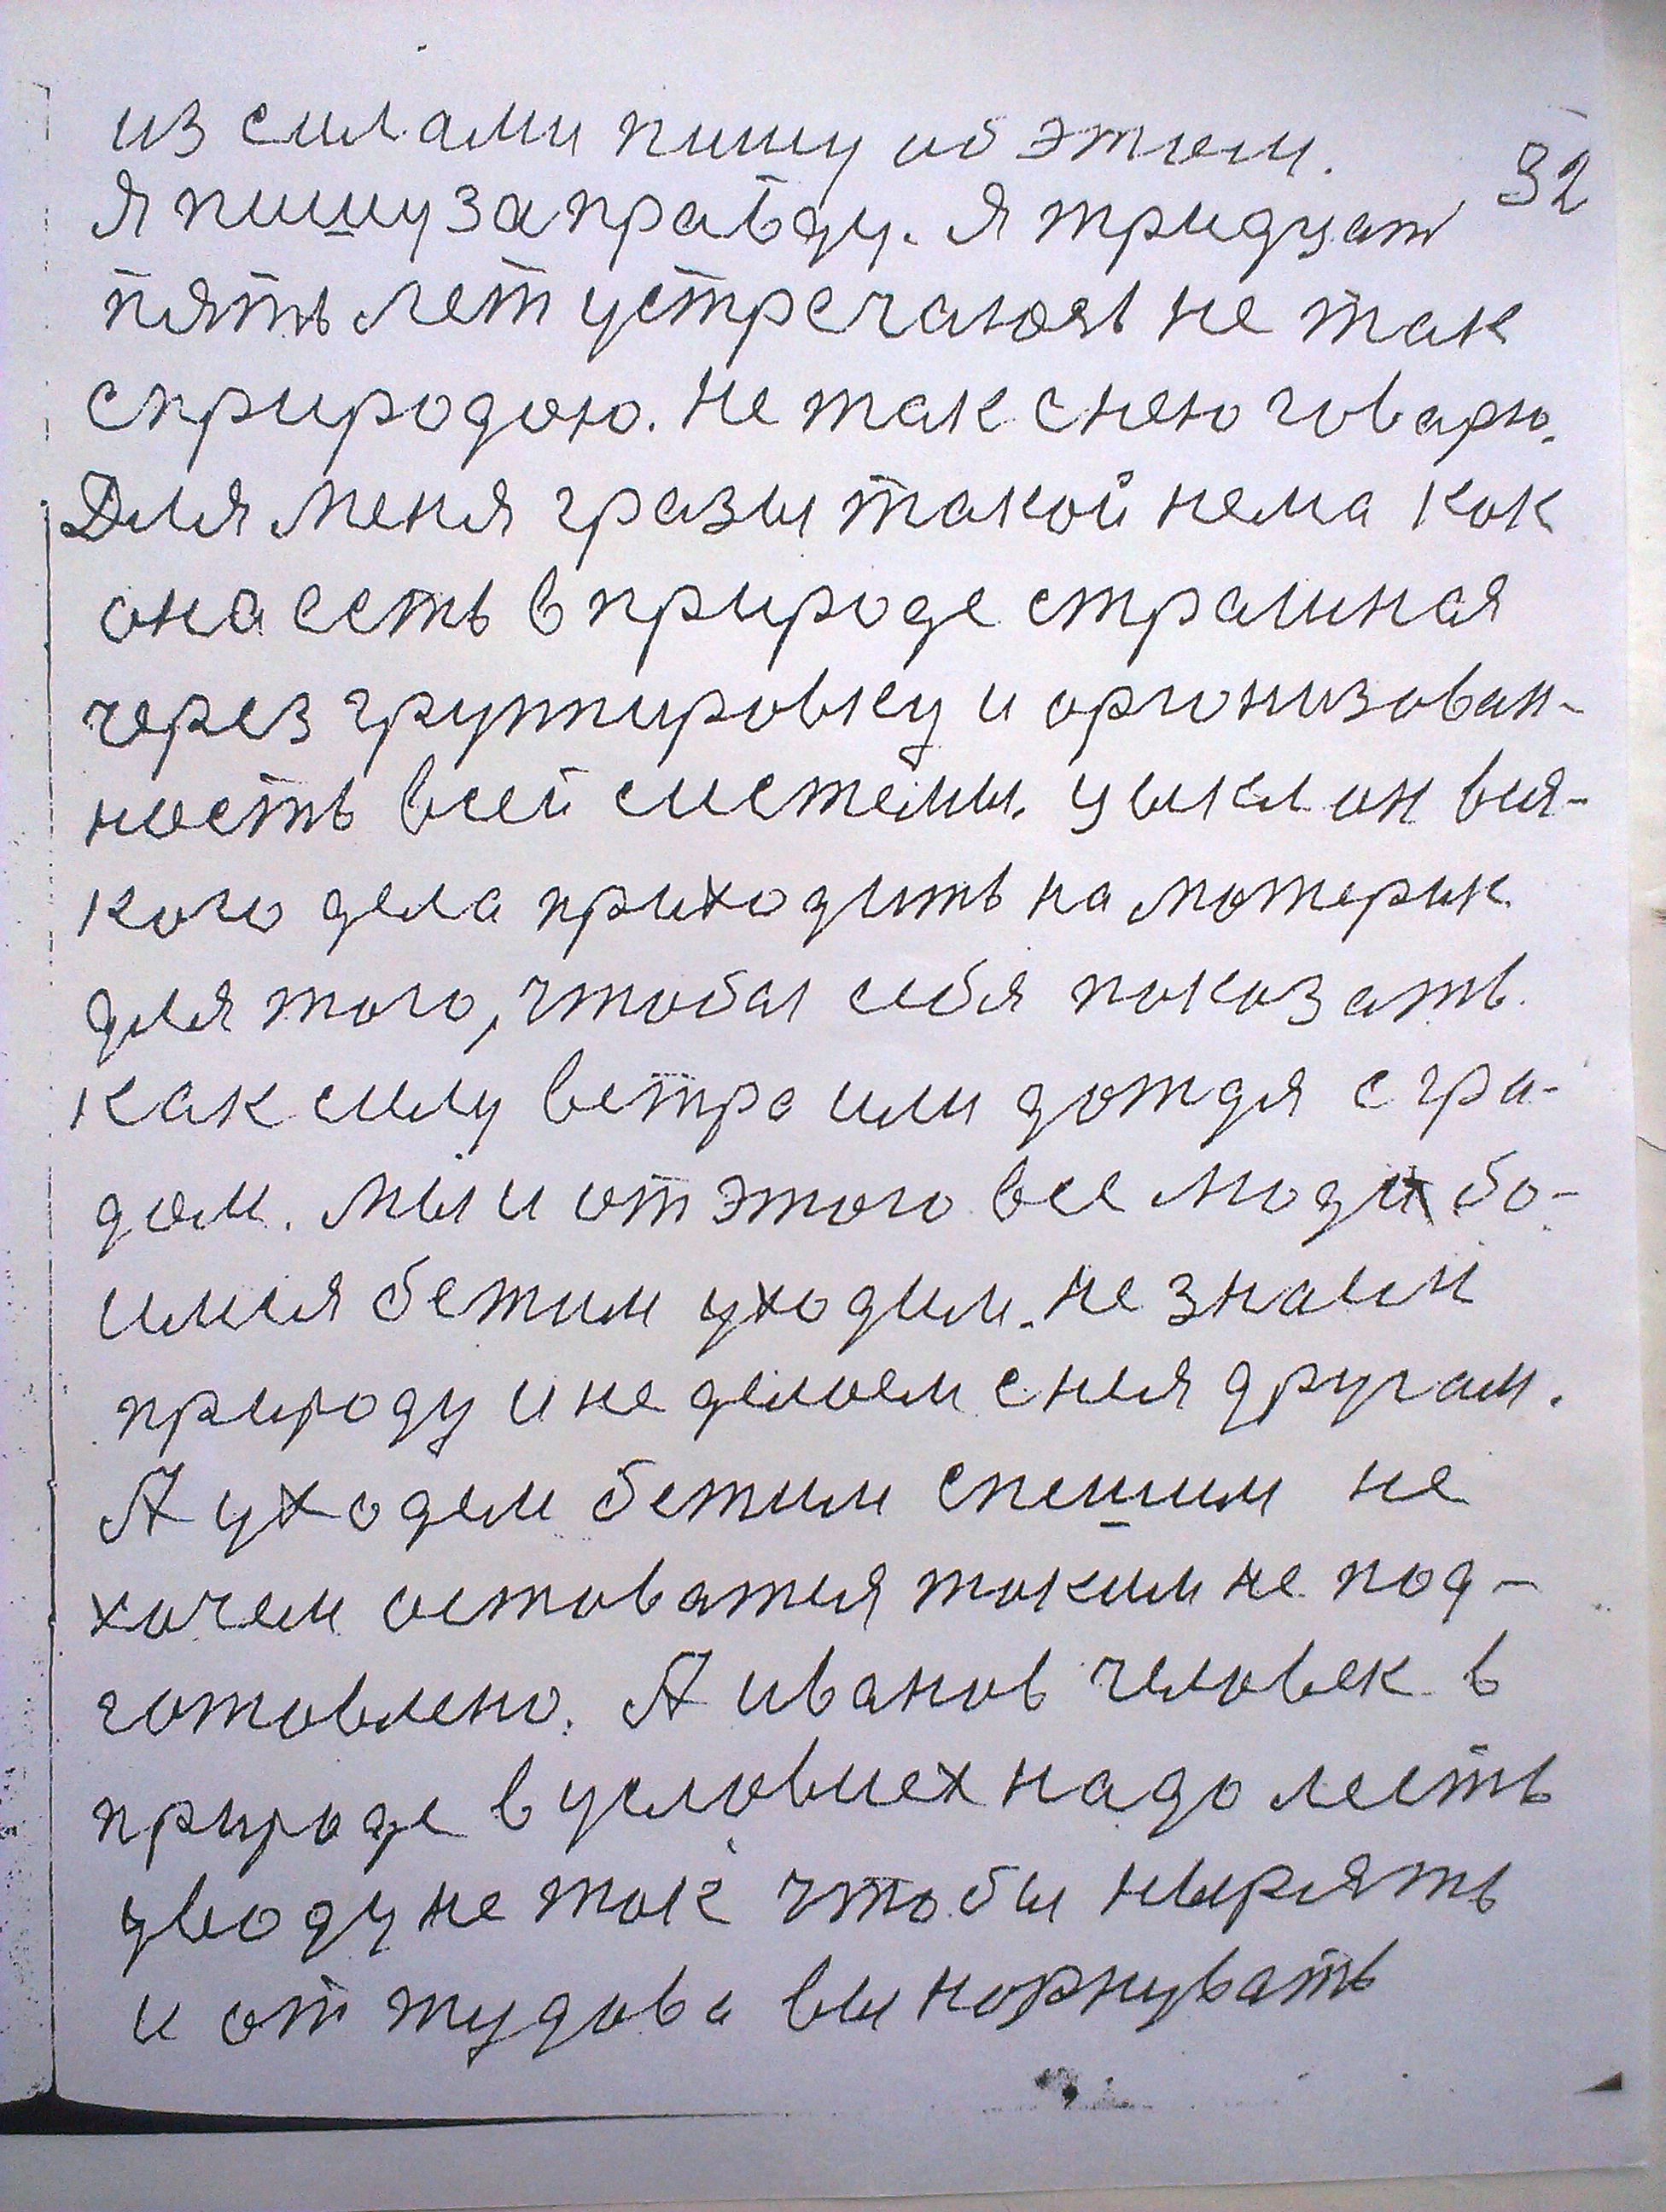 из силами пишу об этом.
32
Я пишу за правду. Я тридцат
пять лет устречаюсь не так
с природою. Не так с нею говарю.
Для меня гразы такой нема как
она есть в природе страшная
через группировку и организован-
ность всей системы. Цыклон вся-
кого дела приходить на материк
для того, чтобы себя показать.
как силу ветра или дождя с гра-
дом. Мы и от этого все люди бо-
имся бежим уходим. Не знаим
природу и не делаем с нея другам.
А уходем бежим спешим не
хочем оставатся таким не под-
готовлено. А иванов человек в
природе в условиех надо лесть
уводу не так чтобы нырять
и от тудова вынорнувать